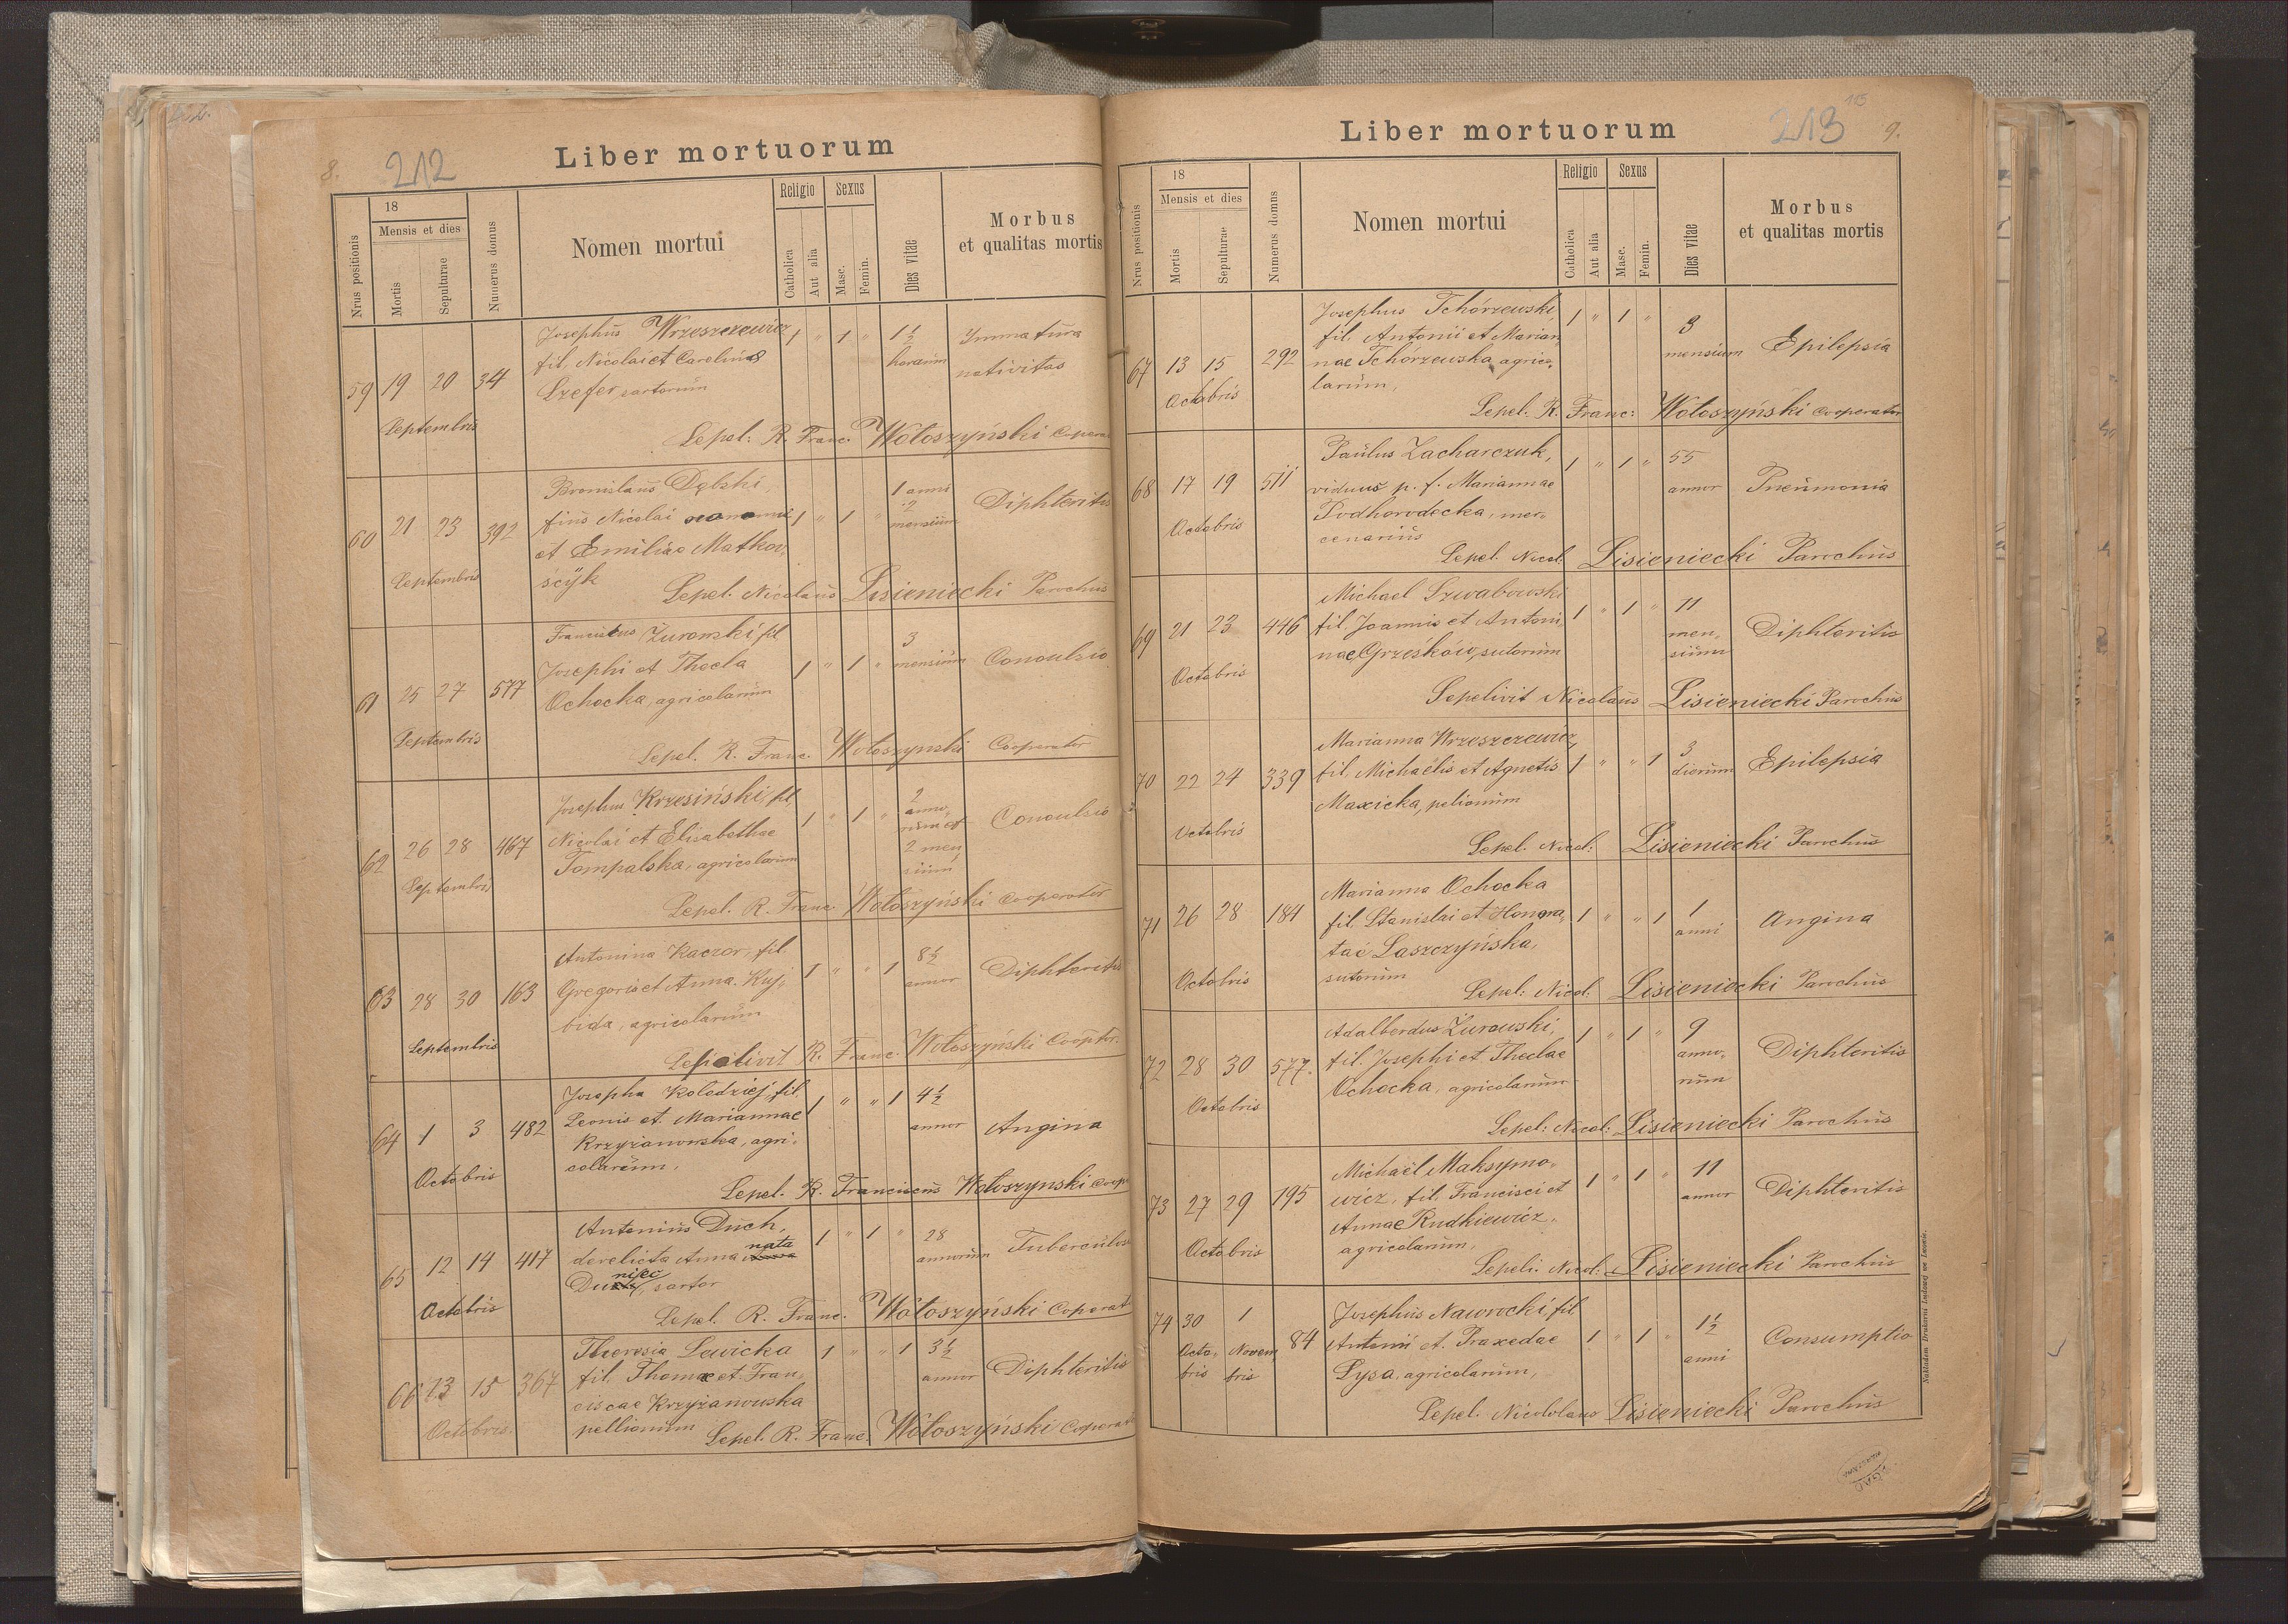 8.
212
Liber mortuorum
Nrus positionis
18
Mensis et dies
Mortis
Sepulturae
Numerus domus
Nomen mortui
Religio
Catholica
Aut alia
Sexus
Masc.
Femin.
Dies vitae
Morbus
et qualitas mortis
Josephus Wrzeszczewicz 1 " 1 " 1½ Immatura
fil. Nicolai et Carolinae horarum nativitas
59 19 20 34 Szefer sartorum
Septembris
Sepel: R. Franc. Wołoszyński Copera
Bronislaus Dębski, 1 anni
fius Nicolai et 1 " 1 " 2 mensium Diphteritis
60 21 23 392 et Emiliae Matkow
Septembris ścÿk
Sepel. Nicolaus Lisieniecki Parochus
Franciscus Żurowski fil 3
Josephi et Thecla 1 " 1 " mensium Convulsio
61 25 27 577 Ochocka, agricolarum
Septembris
Sepel. R. Franc. Wołoszyński Cooperator
Josephus Krzesiński, fil 1 " 1 " 2 anno
62 26 28 467 Nicolai et Elisabethae rum et Convulsio
Tompalska, agricolarum 2 men
Septembris sium
Sepel. R. Franc. Wołoszyński Cooperator
Antonina Kaczor, fil. 8½
63 28 30 163 Gregoris et Anna Kuj- 1 " " 1 annor Diphteritis
bida, agricolarum
Septembris
Sepelivit R. Franc. Wołoszyński Cooptor.
Josepha Kołodziej, fil. 1 " " 1 4½
64 1 3 482 Leonis et Mariannae annor Angina
Krzyżanowska, agri-
Octobris colarum,
Sepel. R. Franciscus Wołoszynski Coop
Antonius Duch, 1 " 1 " 28
65 12 14 417 derelicta Anna nata annorum Tuberculos
Duniec, sartor
Octobris
Sepel. R. Franc. Wołoszyński Coperat
Theresia Lewicka 1 " " 1 3½
66 13 15 367 fil. Thomae et Fran- annor Diphteritis
ciscae Krzyżanowska
Octobris pellionum
Sepel. R. Franc. Wołoszyński Coperat
115
213
9.
Liber mortuorum
Nrus positionis
18
Mensis et dies
Mortis
Sepulturae
Numerus domus
Nomen mortui
Religio
Catholica
Aut alia
Sexus
Masc.
Femin.
Dies vitae
Morbus
et qualitas mortis
Josephus Tchórzewski, 1 " 1 " 3
67 13 15 292 fil. Antonii et Marian mensium Epilepsia
nae Tchórzewska, agrico-
Octobris larum,
Sepel. R. Franc: Wołoszyński Cooperator
Paulus Zacharczuk, 1 " 1 " 55
68 17 19 511 viduus p. f. Mariannae annor Pneumonia
Podhorodecka, mer-
Octobris cenarius
Sepel. Nicol. Lisieniecki Parochus
Michael Szwabowski 1 " 1 " 11
69 21 23 446 fil. Joannis et Antoni men- Diphteritis
nae Grześków, sutorum sium
Octobris
Sepelivit Nicolaus Lisieniecki Parochus
Marianna Wrzeszczewicz, 3
70 22 24 339 fil. Michaëlis et Agnetis 1 " " 1 dierum Epilepsia
Maxicka, pelionum
Octobris
Sepel. Nicol: Lisieniecki Parochus
Marianna Ochocka
71 26 28 184 fil. Stanislai et Honora- 1 " " 1 1 anni Angina
tae Laszczyńska,
Octobris sutorum
Sepel: Nicol. Lisieniecki Parochus
Adalberdus Żurowski, 1 " 1 " 9
72 28 30 577. fil. Josephi et Theclae anno- Diphteritis
Ochocka, agricolarum rum
Octobris
Sepel: Nicol: Lisieniecki Parochus
Michaël Maksymo- 1 " 1 " 11
73 27 29 195 wicz, fil. Francisci et annor Diphteritis
Annae Rudkiewicz,
Octobris agricolarum
Sepeli. Nicol: Lisieniecki Parochus
74 30 1 Josephus Nawrocki, fil 1½
Octo- Novem 84 Antonii et Praxedae 1 " 1 " anni Consumptio
bris bris Łysa, agricolarum,
Sepel. Nicololaus Lisieniecki Parochus
Nakładem Drukarni Ludowej we Lwowie.